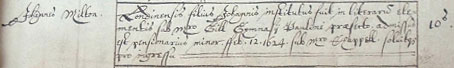 Johannes Milton
Londinensis filius Johannis institutus fuit in literarum ele-
mentis sub Mro Gill Gymnasij Paulini præfecto, admissus
est pensionarius minor Feb. 12. 1624. sub Mro Chappell. solvitq;
pro ingressu
10s